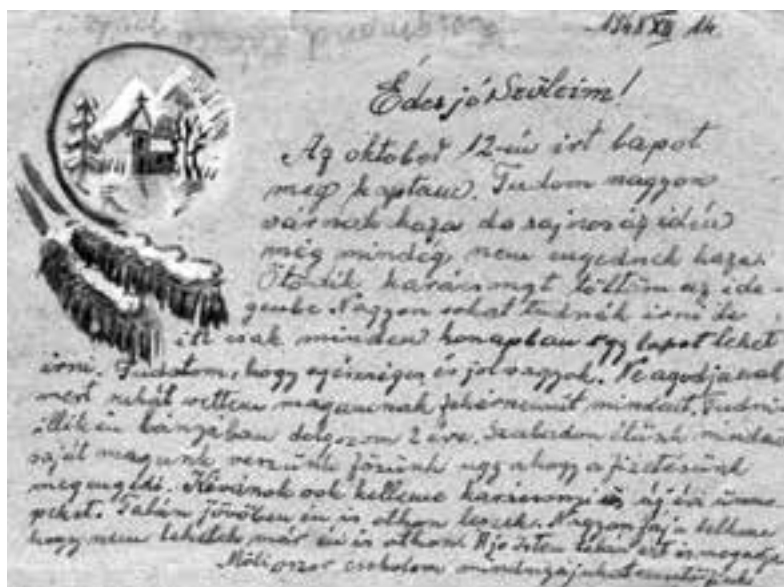 1948 XII 14.
Édes jó Szüleim!
Az október 12-én irt lapot
meg kaptam. Tudom nagyon
várnak haza de sajnos az idén
még mindég nem engednek haza.
Ötödik karácsonyt töltöm az ide-
genbe. Nagyon sokat tudnák irni de
itt csak minden honapban egy lapot lehet
irni. Tudatom, hogy egészséges és jol vagyok. Ne
mert ruhát vettem magamnak fehérnemüt mindent. Tudni
illik én bányában dolgozom 2 éve. Szabadon élünk minden
saját magunk veszünk főzünk ugy ahogy a fizetésünk
megengedi. Kivánok sok kelleme karácsonyi és uj évi ünne
peket. Talán jövöben én is othon leszek. Nagyon fáj a lelkem
hogy nem lehetek már én is othon. A jo Isten talán ezt is
csokolom